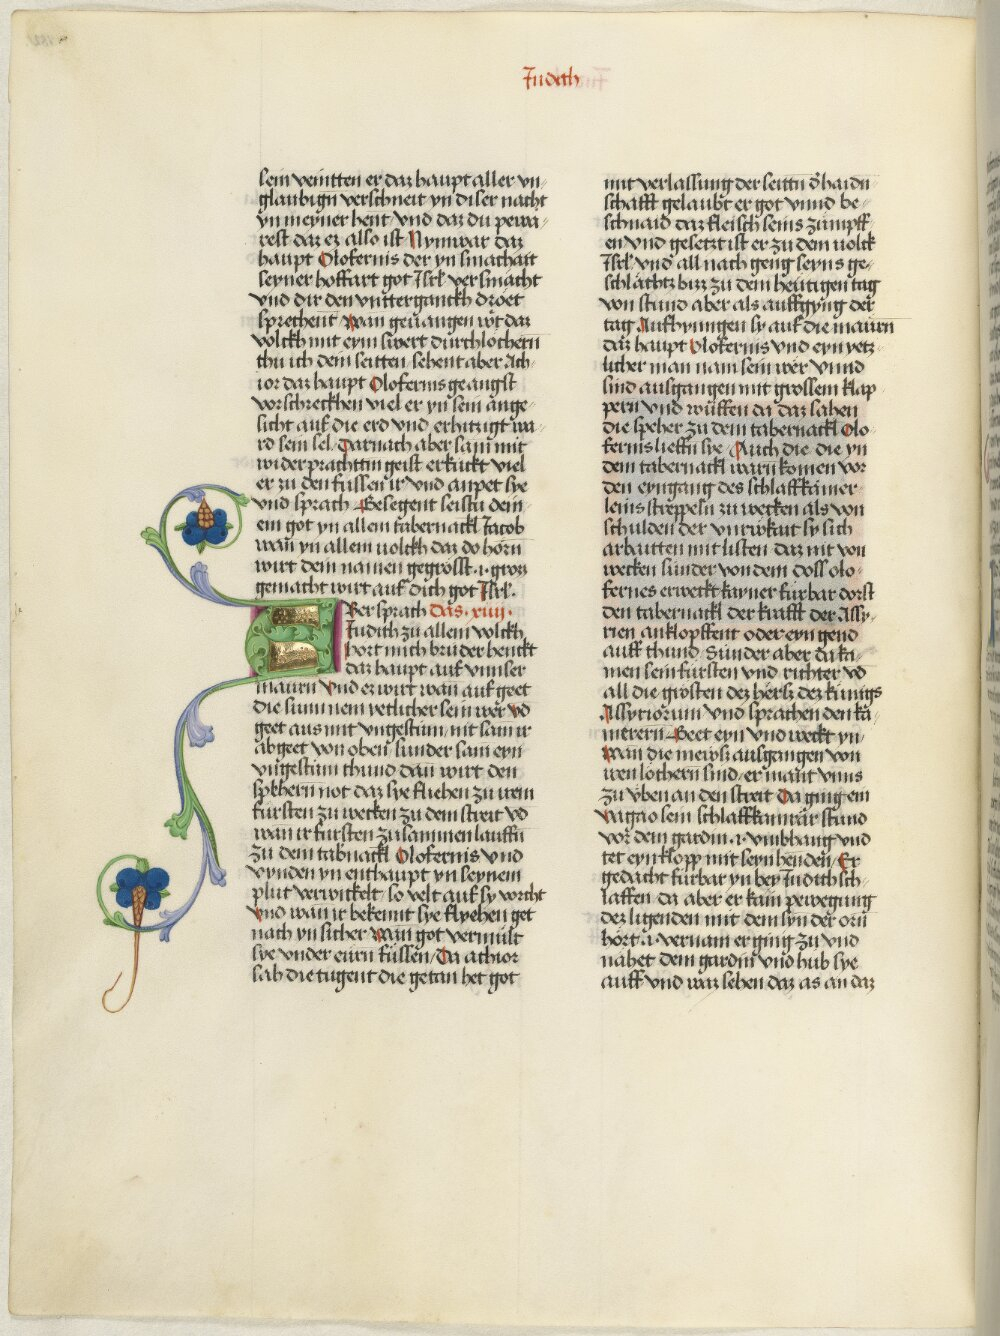 Judith
sein veintten er daz haupt aller vn⸗
glaubign verschneit yn diser nacht
yn meyner hent vnd daz du pewa⸗
rest daz ez also ist Nymwar daz
haupt Olofernis der yn smachait
seyner hoffart got Jsrl versmächt
vnd dir den vntterganckh dröet
sprechent wan geuangen wirt daz
volckh mit eym swert durchlöchern
thu ich dein seitten sehent aber Ach⸗
ior daz haupt Olofernis geangst
vorschreckhen viel er yn sein ange⸗
sicht auf die erd vnd erhitzigt wa⸗
rd sein sel Darnach aber sam mit
widerprachttm geist erkückt viel
er zu den füssen ir vnd anpet sye
vnd sprach Gesegent seistu dein
ein got yn allem tabernackl Jacob
wan yn allem volckh daz do hörn
wirt dein namen gegrösst .i. gross
gemacht wirt auf dich got Jsrl.
Ber sprach Das .xiiij.
Judith zu allem volckh
hort mich brüder henckt
daz haupt auf vnnser
maurn vnd ez wirt wan auf geet
die sunn nem yetlicher sein wer vd
geet aus mit vngestüm nit sam ir
abgeet von oben sunder sam eyn
vngestüm thund dan wirt den
spehern not daz sye fliehen zu irem
fürsten zu wecken zu dem streit vd
wan ir fürsten zusammen lauffn
zu dem tabnackl Olofernis vnd
vynden yn enthaupt yn seynem
plut verwickelt so velt auf sy vorcht
vnd wan ir bekennt sye flyehen get
nach yn sicher wan got vermült
sye vnder eurn füssen Da achior
sah die tugent die getan het got
mit verlassung der seittn d haidn⸗
schafft gelaubt er got vnnd be⸗
schnaid daz fleisch seins zümpff⸗
en vnd gesetzt ist er zu dem volck
Jsrl vnd all nach geng seyns ge⸗
schlächtz bizz zu dem heutigen tag
von stund aber als auffgyng der
tag Aufhyningen sy auf die maurn
daz haupt Olofernis vnd eyn yetz⸗
licher man nam sein wer vnnd
sind ausgangen mit grossem klap⸗
pern vnd wüffen da daz sahen
die speher zu dem tabernackl Olo⸗
fernis lieffn sye Auch die die yn
dem tabernackl warn komen vor
den eyngang des schlaffkamer⸗
leins streppeln zu wecken als von
schulden der vnrwkait sy sich
arbaitten mit listen daz nit von
wecken sunder von dem doss olo⸗
fernes erweckt kayner fürbar dorst
den tabernackl der krafft der Assy⸗
rien anklopffent oder eyn gend
auff thund Sunder aber da ka⸗
men sein fürsten vnd richter vd
all die grösten dez hersz dez künigs
Assyriorum vnd sprachen den ka⸗
mrern Geet eyn vnd weckt yn
wan die mewsz ausgangen von
iren löchern sind er mant vnns
zu vben an den streit Da ging ein
vagao sein schlaffkamrär stund
vor dem gardin .i. vmbhang vnd
tet eyn klopp mit seyn henden Er
gedacht fürbar yn bey Judith sch⸗
laffen da aber er kain pewegung
dez ligenden mit dem syn der orn
hört .i. vernam er ging zu vnd
nahet dem gardin vnd hub sye
auff vnd waz sehen daz as an daz